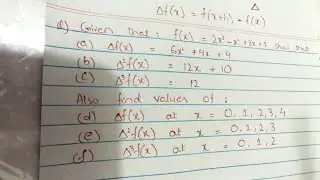 Δ
Δf(x) = f(x+h) - f(x)
Q) Given that: f(x) = 2x³-x²+3x+1 show that
(a) Δf(x) = 6x²+4x+4
(b) Δ²f(x) = 12x+10
(c) Δ³f(x) = 12
Also find values of :
(d) Δf(x) at x = 0,1,2,3,4
(e) Δ²f(x) at x = 0,1,2,3
(f) Δ³f(x) at x = 0,1,2